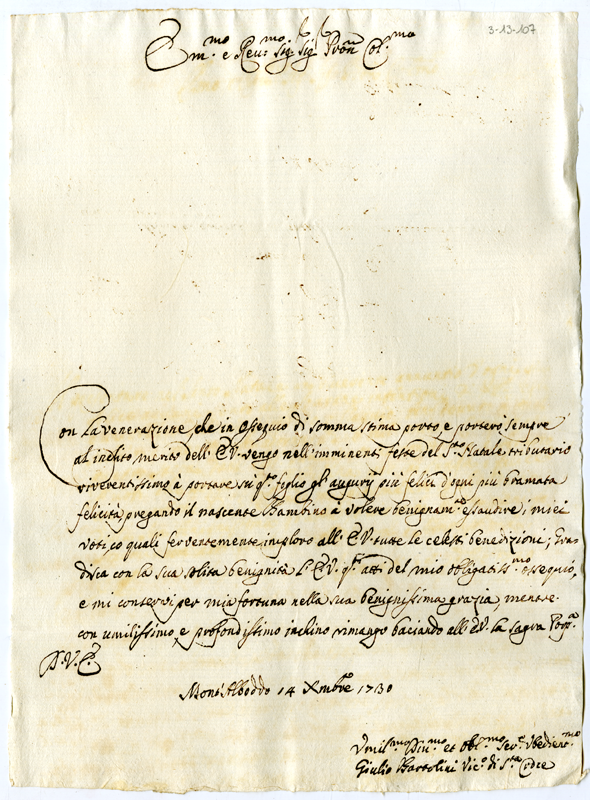 3-13-107
Em.mo e Rev.mo Sig.r Sig.r Pron Col.mo
Con la venerazione che in ossequio di somma stima porto e porterò sempre
al inclito merito dell' E.V. vengo nell' imminenti feste del S.to Natale tributario
riverentissimo à portare sù q.to foglio gl' augurij più felici d'ogni più bramata
felicità, pregando il nascente Bambino à volere benignam.e essaudire i miei
voti, co quali ferventemente imploro all' E.V. tutte le celesti benedizioni; Gra-
disca con la sua solita benignità l' E.V. q.ti atti del mio obligatiss.mo ossequio,
e mi conservi per mia fortuna nella sua benignissima grazia, mentre
con umilissimo, e profondissimo inchino rimango baciando all' E.V. la sagra Porp.a
D. V. E.
Mont'Alboddo 14 Xmbre 1730
Umil.mo Div.mo et Obl.mo Ser.e Obedient.mo
Giulio Bartolini Vic.o di S.ta Croce